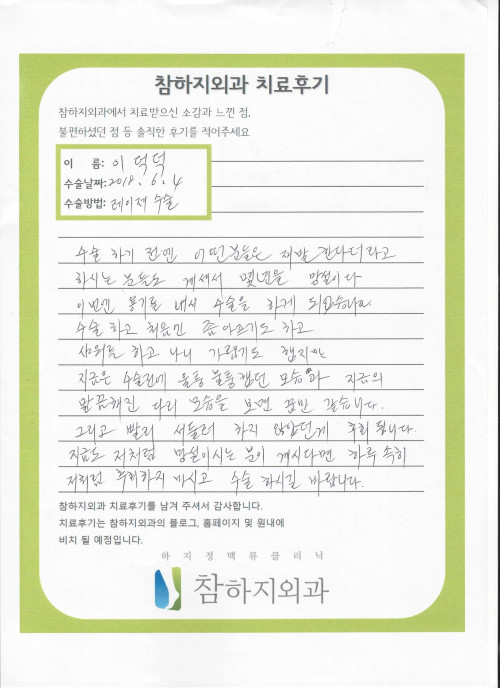 참하지외과 치료후기
참하지외과에서 치료받으신 소감과 느낀 점,
불편하셨던 점 등 솔직한 후기를 적어주세요
이 름: 이덕덕
수술날짜: 2018. 6. 4
수술방법: 레이저 수술
수술 하기 전엔 어떤분들은 재발 한다더라고
하시는 분들도 계셔서 몇년을 망설이다
이번엔 용기를 내서 수술을 하게 되었습니다
수술 하고 처음엔 좀 아프기도 하고
샤워를 하고 나니 가렵기도 했지만
지금은 수술전에 울퉁 불퉁했던 모습과 지금의
말끔해진 다리 모습을 보면 꿈만 같습니다.
그리고 빨리 서둘러 하지 않았던게 후회 됩니다.
지금도 저처럼 망설이시는 분이 계시다면 하루 속히
저처럼 후회하지 마시고 수술 하시길 바랍니다.
참하지외과 치료후기를 남겨 주셔서 감사합니다.
치료후기는 참하지외과의 블로그, 홈페이지 및 원내에
비치 될 예정입니다.
하지정맥류클리닉
참하지외과